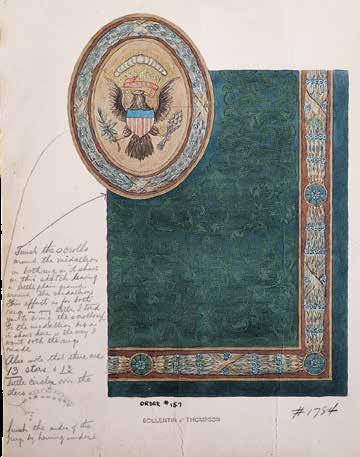 Finish the scrolls
around the medallion
on both rugs as it shows
in this sketch leaving
a little plain ground
around the medallion
This effect is for both
rugs in my order I told
you to bring the scrolling
to the medallion but as
it shows here is the way I
want both the rugs
made
Also note that there are
13 stars & 13
little circles over the
stars
finish the ends of the
rug by having
ORDER #157
BOLLENTIN & THOMPSON
#1784